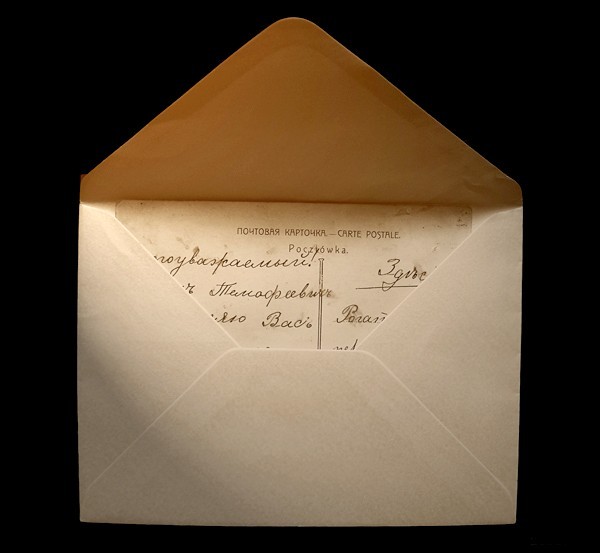 ПОЧТОВАЯ КАРТОЧКА. — CARTE POSTALE.
Pocztówka.
гоуважаемый!
Здѣс
ъ Тимофеевичъ
яю Васъ
Рогат